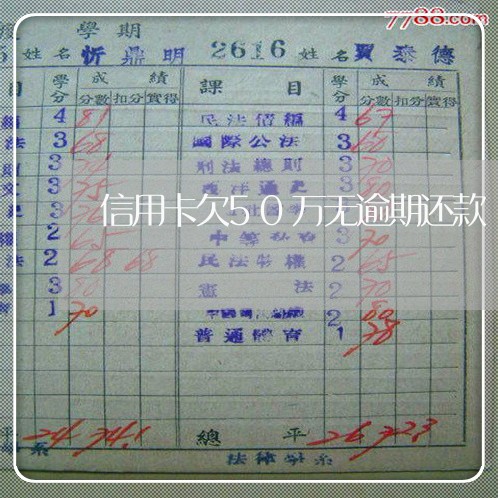 7788.com
學期
姓名 忻鼎明 2616 姓名 賈泰德
目 學分 成績 課目 學分 成績
分數 扣分 實得 分數 扣分 實得
4 81 民法債編 4 67
法 3 68 國際公法 3 60
3 刑法總則 3 70
3 75 西洋通史 3 80
信用卡欠50万无逾期还款
2 65 3 70
法 2 68 68 民法物權 2 65
3 80 憲法 2 70
1 70 2 80
普通體育 1 78
平 24 74.1 總平 26 72.3
系 法律學系